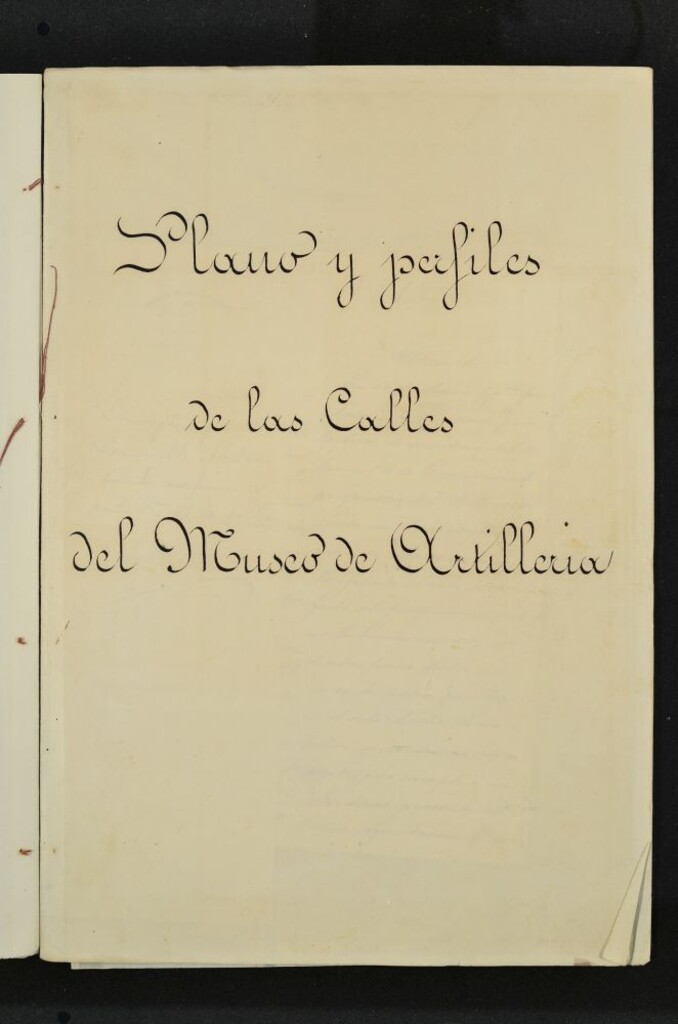 Plano y perfiles
de las Calles
del Museo de Artilleria